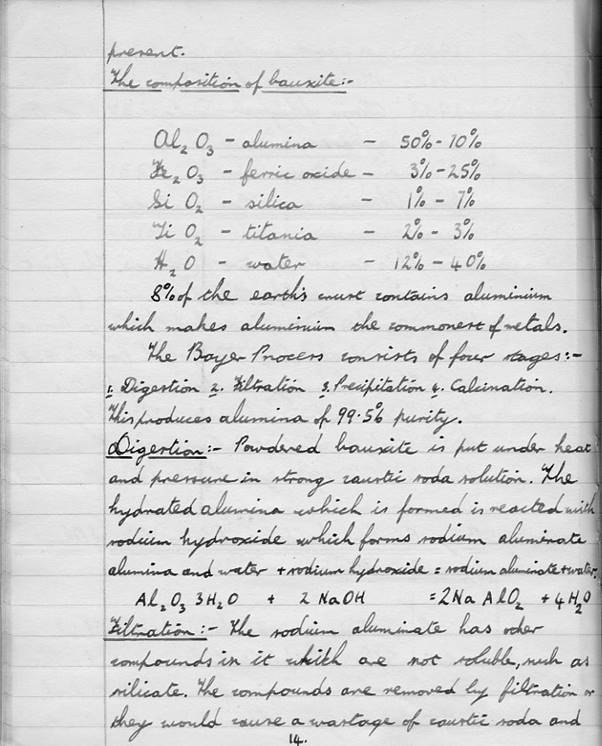 present.
The composition of bauxite:-
Al₂O₃ - alumina - 50% - 70%
Fe₂O₃ - ferric oxide - 3% - 25%
SiO₂ - silica - 1% - 7%
TiO₂ - titania - 2% - 3%
H₂O - water - 12% - 40%
8% of the earth's crust contains aluminium
which makes aluminium the commonest of metals.
The Bayer Process consists of four stages:-
1. Digestion 2. Filtration 3. Precipitation 4. Calcination.
This produces alumina of 99.5% purity.
Digestion:- Powdered bauxite is put under heat
and pressure in strong caustic soda solution. The
hydrated alumina which is formed is reacted with
sodium hydroxide which forms sodium aluminate
alumina and water + sodium hydroxide = sodium aluminate + water.
Al₂O₃ 3H₂O + 2 NaOH = 2Na AlO₂ + 4H₂O
Filtration:- The sodium aluminate has oder
compounds in it which are not soluble, such as
silicate. The compounds are removed by filtration or
they would cause a wastage of caustic soda and
14.